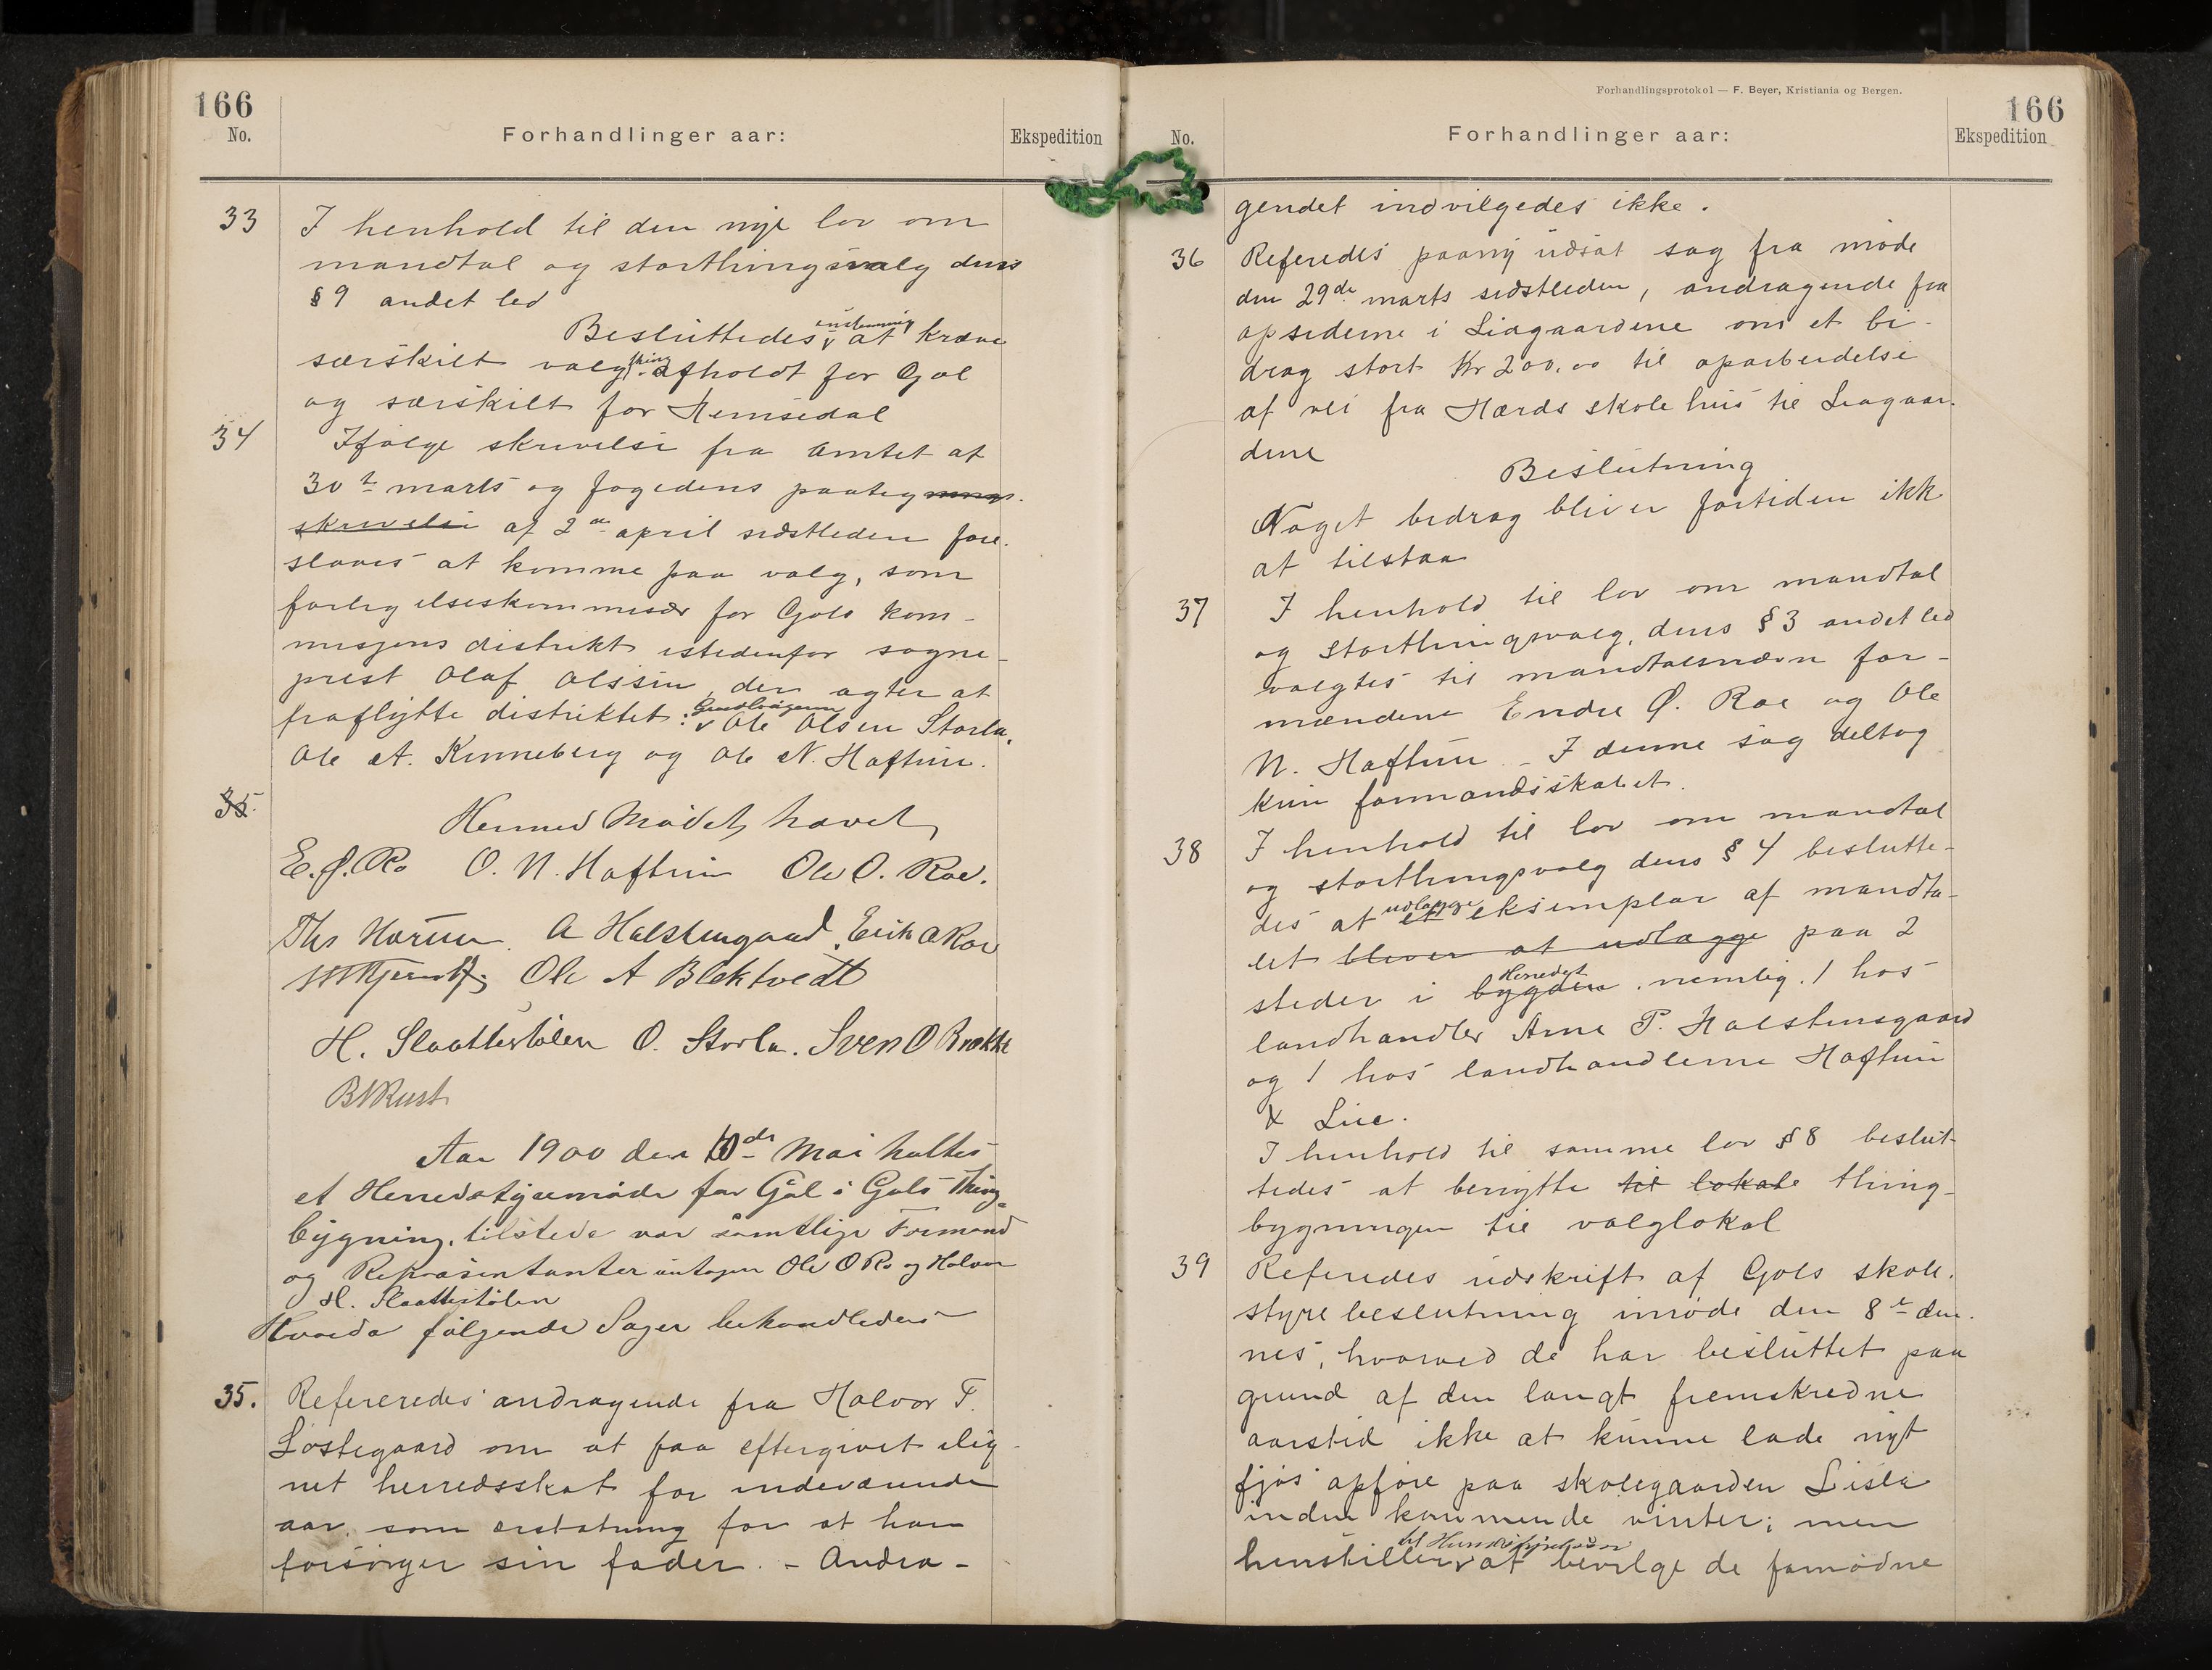 166
No.
Forhandlinger aar:
Ekspedition
33
I henhold til den nye lov om
mandtal og storthingsvalg dens
§ 9 andet led
Besluttedes enstemmig at kræve
særskilt valgthing afholdt for Gol
og særskilt for Hemsedal
34
Ifølge skrivelse fra Amtet af
30te marts og fogedens paateg
skrivelse af 2den april sidstleden fore-
slaaes at komme paa valg, som
forligelseskommisær for Gols kom-
misjons distrikt istedenfor sogne-
prest Olaf Olssen, der agter at
fraflytte distriktet: Gaardbrugerne Ole Olsen Storla,
Ole A. Kinneberg og Ole N. Haftun.
35.
Hermed Mødet hævet
E. Ø. Ro O. N. Haftun Ole O. Roe.
Ths A Halstensgaard Erik A Roe
Ole A Blektvedt
H. Slaattestølen O. Storla. Sven O Brække
B Rust
Aar 1900 den 10de Mai holtes
et Herredstyremøde for Gol i Gols Thing-
bygning, tilstede var samtlige Formænd
og Repræsentanter untagen Ole O Ro og Halvor
H. Slaattestølen
Hvorda følgende Sager behandledes
35.
Refereredes andragende fra Halvor T.
Løstegaard om at faa eftergivet ilig-
net herredsskat for indeværende
aar, som erstatning for at han
forsørger sin fader. - Andra-
Forhandlingsprotokol — F. Beyer, Kristiania og Bergen.
166
No.
Forhandlinger aar:
Ekspedition
gendet indvilgedes ikke.
36
Referedes paany udsat sag fra møde
den 29de marts sidstleden, andragende fra
opsiderne i Liagaardene om et bi-
drag stort Kr 200,00 til oparbeidelse
af vei fra Hærds skolehus til Liagaar-
dene
Beslutning
Noget bedrag bliver fortiden ikke
at tilstaa
37
I henhold til lov om mandtal
og storthingsvalg, dens § 3 andet led
valgtes til mandtalsnævn for-
mændene Endre Ø. Roe og Ole
N. Haftun - I denne sag deltog
kun formandsskabet.
38
I henhold til lov om mandtal
og storthingsvalg dens § 4 beslutte-
des at udlægge et eksemplar af mandta-
let bliver at udlægge paa 2
steder i bygden Herredet, nemlig 1 hos
landhandler Arne P. Halstensgaard
og 1 hos landhandlerne Haftun
& Lie.
I henhold til samme lov § 8 beslut-
tedes at benytte til lokale thing-
bygningen til valglokal
39
Referedes udskrift af Gols skole-
styrebeslutning i møde den 8de den-
nes, hvorved de har besluttet paa
grund af den langt fremskredne
aarstid ikke at kunne lade nyt
fjøs opføre paa skolegaarden Lisla
inden kommende vinter; men
henstiller til Herredsstyret at bevilge de fornødne